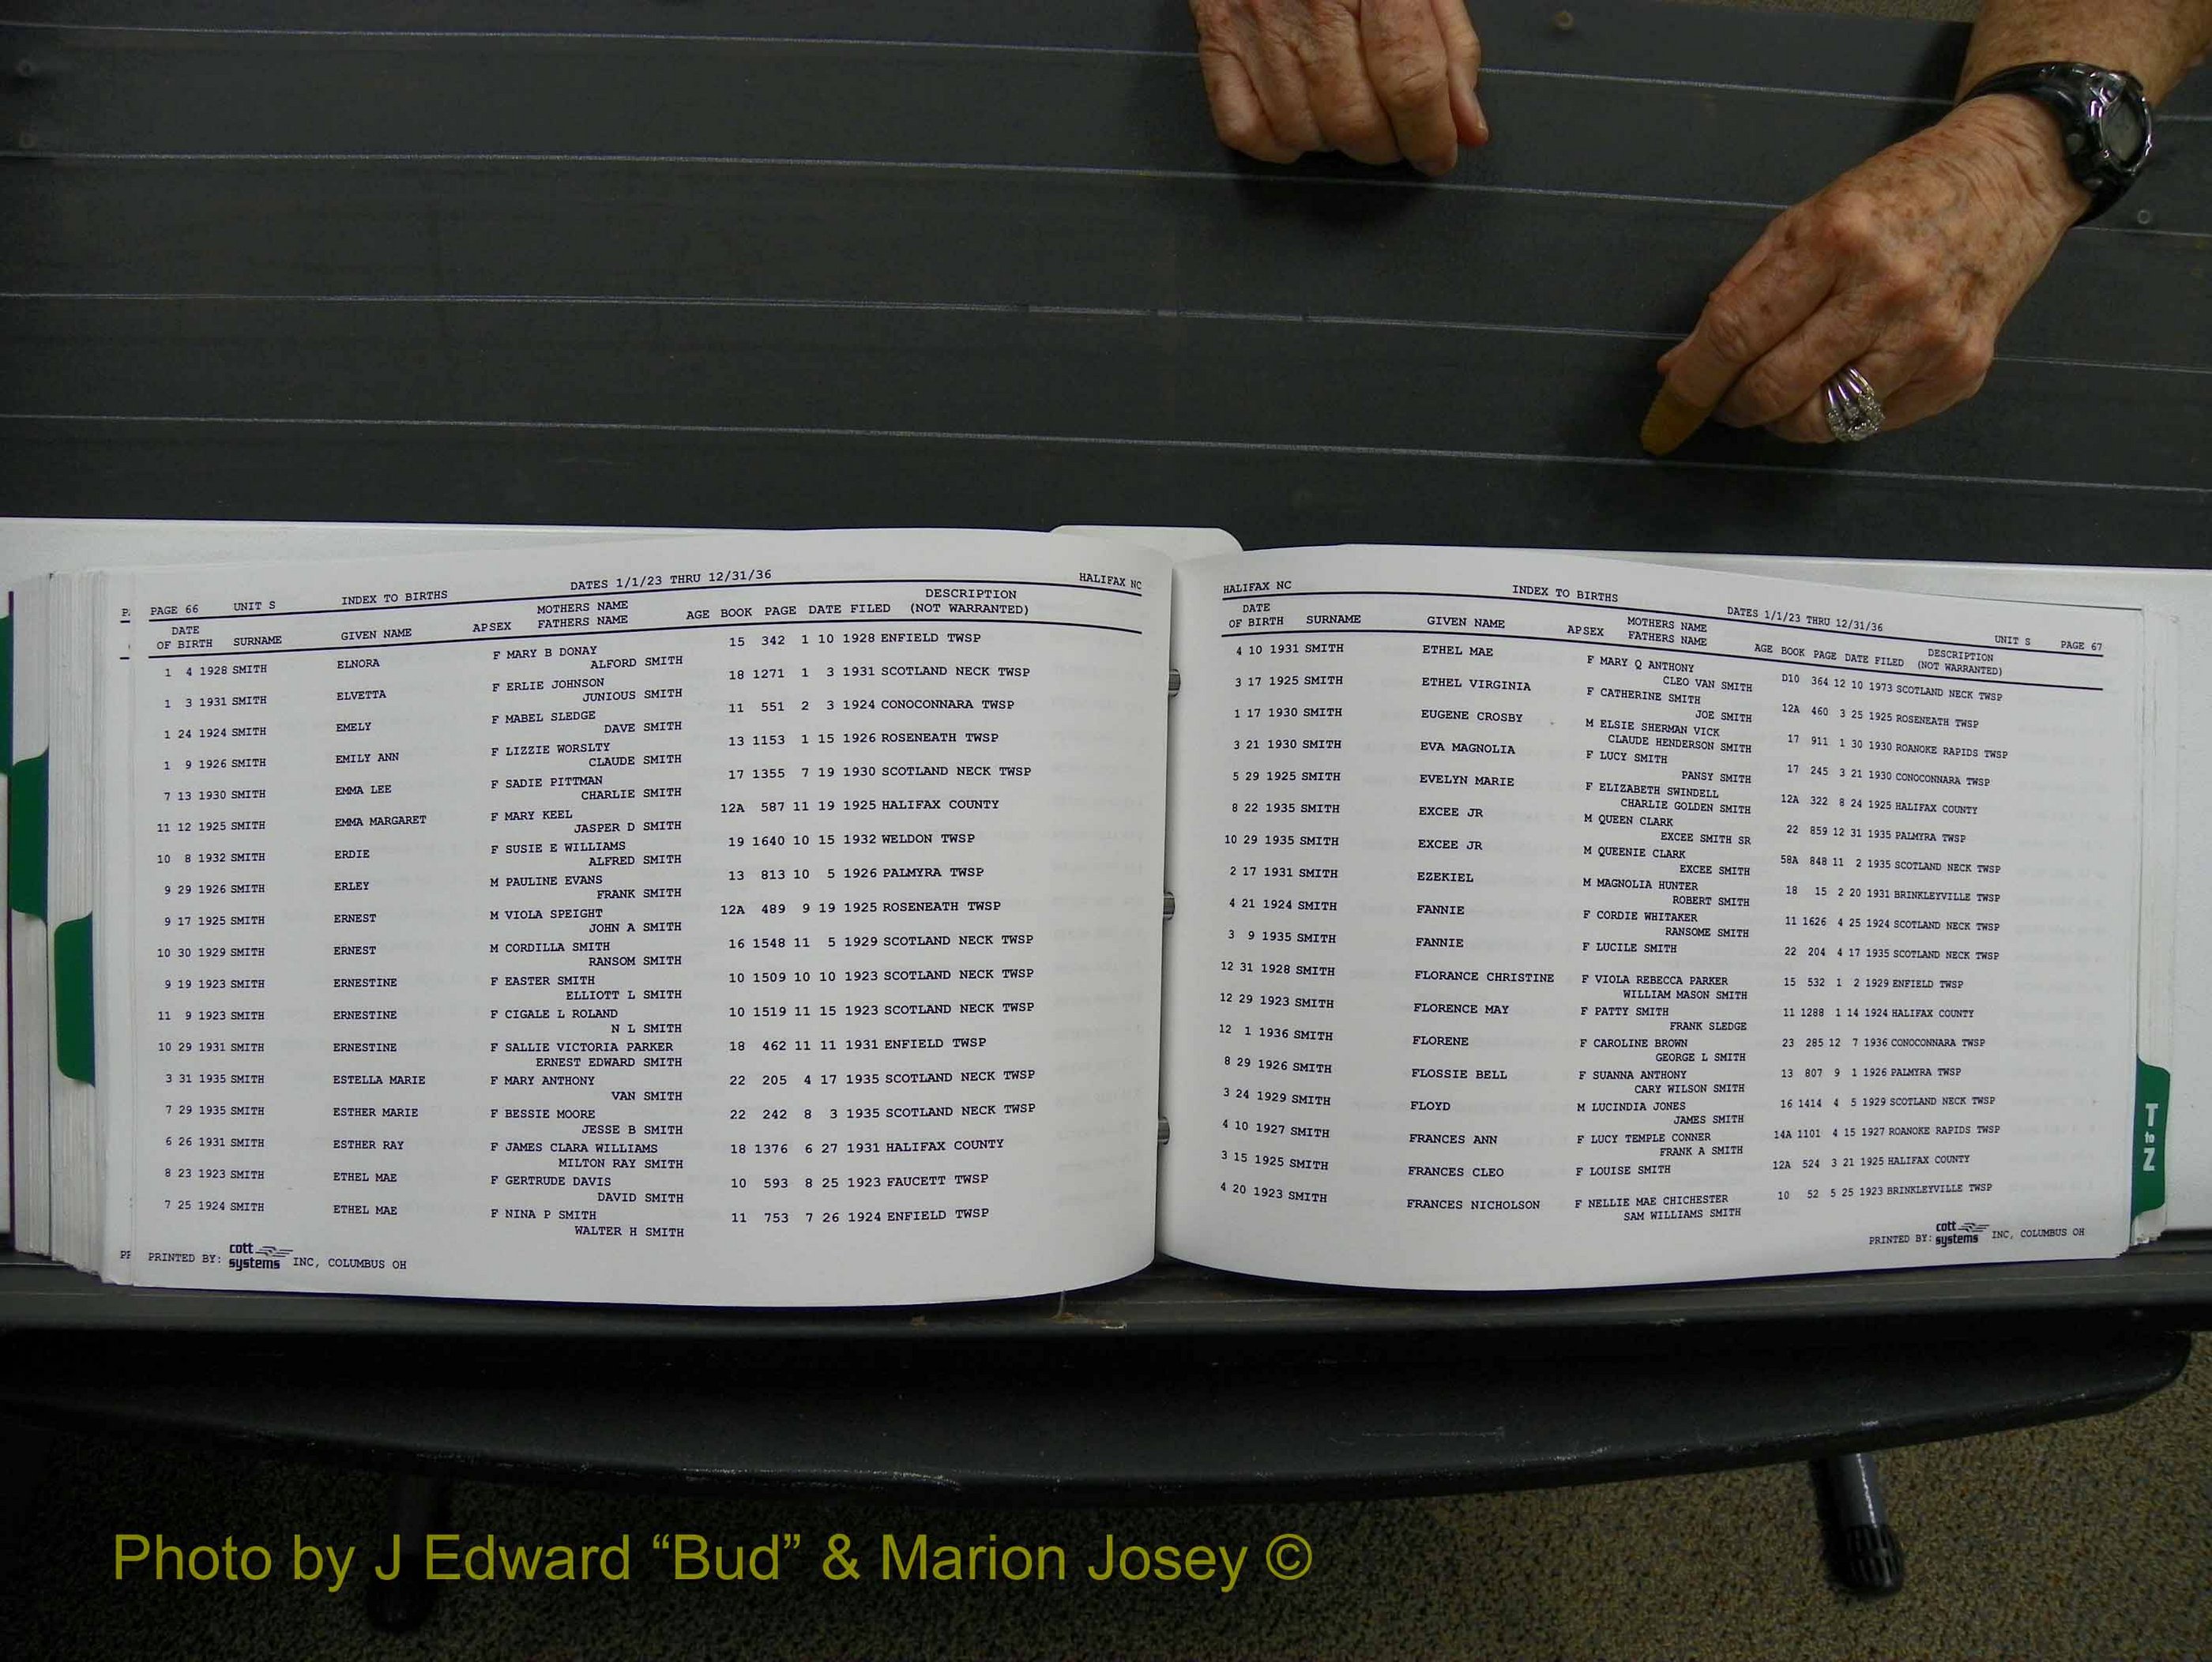 PAGE 66 UNIT S INDEX TO BIRTHS DATES 1/1/23 THRU 12/31/36 HALIFAX NC
DATE OF BIRTH SURNAME GIVEN NAME APSEX MOTHERS NAME FATHERS NAME AGE BOOK PAGE DATE FILED DESCRIPTION (NOT WARRANTED)
1 4 1928 SMITH ELNORA F MARY B DONAY 15 342 1 10 1928 ENFIELD TWSP
ALFORD SMITH
1 3 1931 SMITH ELVETTA F ERLIE JOHNSON 18 1271 1 3 1931 SCOTLAND NECK TWSP
JUNIOUS SMITH
1 24 1924 SMITH EMELY F MABEL SLEDGE 11 551 2 3 1924 CONOCONNARA TWSP
DAVE SMITH
1 9 1926 SMITH EMILY ANN F LIZZIE WORSLTY 13 1153 1 15 1926 ROSENEATH TWSP
CLAUDE SMITH
7 13 1930 SMITH EMMA LEE F SADIE PITTMAN 17 1355 7 19 1930 SCOTLAND NECK TWSP
CHARLIE SMITH
11 12 1925 SMITH EMMA MARGARET F MARY KEEL 12A 587 11 19 1925 HALIFAX COUNTY
JASPER D SMITH
10 8 1932 SMITH ERDIE F SUSIE E WILLIAMS 19 1640 10 15 1932 WELDON TWSP
ALFRED SMITH
9 29 1926 SMITH ERLEY M PAULINE EVANS 13 813 10 5 1926 PALMYRA TWSP
FRANK SMITH
9 17 1925 SMITH ERNEST M VIOLA SPEIGHT 12A 489 9 19 1925 ROSENEATH TWSP
JOHN A SMITH
10 30 1929 SMITH ERNEST M CORDILLA SMITH 16 1548 11 5 1929 SCOTLAND NECK TWSP
RANSOM SMITH
9 19 1923 SMITH ERNESTINE F EASTER SMITH 10 1509 10 10 1923 SCOTLAND NECK TWSP
ELLIOTT L SMITH
11 9 1923 SMITH ERNESTINE F CIGALE L ROLAND 10 1519 11 15 1923 SCOTLAND NECK TWSP
N L SMITH
10 29 1931 SMITH ERNESTINE F SALLIE VICTORIA PARKER 18 462 11 11 1931 ENFIELD TWSP
ERNEST EDWARD SMITH
3 31 1935 SMITH ESTELLA MARIE F MARY ANTHONY 22 205 4 17 1935 SCOTLAND NECK TWSP
VAN SMITH
7 29 1935 SMITH ESTHER MARIE F BESSIE MOORE 22 242 8 3 1935 SCOTLAND NECK TWSP
JESSE B SMITH
6 26 1931 SMITH ESTHER RAY F JAMES CLARA WILLIAMS 18 1376 6 27 1931 HALIFAX COUNTY
MILTON RAY SMITH
8 23 1923 SMITH ETHEL MAE F GERTRUDE DAVIS 10 593 8 25 1923 FAUCETT TWSP
DAVID SMITH
7 25 1924 SMITH ETHEL MAE F NINA P SMITH 11 753 7 26 1924 ENFIELD TWSP
WALTER H SMITH
PRINTED BY: cott systems INC, COLUMBUS OH
HALIFAX NC INDEX TO BIRTHS DATES 1/1/23 THRU 12/31/36 UNIT S PAGE 67
DATE OF BIRTH SURNAME GIVEN NAME APSEX MOTHERS NAME FATHERS NAME AGE BOOK PAGE DATE FILED DESCRIPTION (NOT WARRANTED)
4 10 1931 SMITH ETHEL MAE F MARY Q ANTHONY D10 364 12 10 1973 SCOTLAND NECK TWSP
CLEO VAN SMITH
3 17 1925 SMITH ETHEL VIRGINIA F CATHERINE SMITH 12A 460 3 25 1925 ROSENEATH TWSP
JOE SMITH
1 17 1930 SMITH EUGENE CROSBY M ELSIE SHERMAN VICK 17 911 1 30 1930 ROANOKE RAPIDS TWSP
CLAUDE HENDERSON SMITH
3 21 1930 SMITH EVA MAGNOLIA F LUCY SMITH 17 245 3 21 1930 CONOCONNARA TWSP
PANSY SMITH
5 29 1925 SMITH EVELYN MARIE F ELIZABETH SWINDELL 12A 322 8 24 1925 HALIFAX COUNTY
CHARLIE GOLDEN SMITH
8 22 1935 SMITH EXCEE JR M QUEEN CLARK 22 859 12 31 1935 PALMYRA TWSP
EXCEE SMITH SR
10 29 1935 SMITH EXCEE JR M QUEENIE CLARK 58A 848 11 2 1935 SCOTLAND NECK TWSP
EXCEE SMITH
2 17 1931 SMITH EZEKIEL M MAGNOLIA HUNTER 18 15 2 20 1931 BRINKLEYVILLE TWSP
ROBERT SMITH
4 21 1924 SMITH FANNIE F CORDIE WHITAKER 11 1626 4 25 1924 SCOTLAND NECK TWSP
RANSOME SMITH
3 9 1935 SMITH FANNIE F LUCILE SMITH 22 204 4 17 1935 SCOTLAND NECK TWSP
12 31 1928 SMITH FLORANCE CHRISTINE F VIOLA REBECCA PARKER 15 532 1 2 1929 ENFIELD TWSP
WILLIAM MASON SMITH
12 29 1923 SMITH FLORENCE MAY F PATTY SMITH 11 1288 1 14 1924 HALIFAX COUNTY
FRANK SLEDGE
12 1 1936 SMITH FLORENE F CAROLINE BROWN 23 285 12 7 1936 CONOCONNARA TWSP
GEORGE L SMITH
8 29 1926 SMITH FLOSSIE BELL F SUANNA ANTHONY 13 807 9 1 1926 PALMYRA TWSP
CARY WILSON SMITH
3 24 1929 SMITH FLOYD M LUCINDIA JONES 16 1414 4 5 1929 SCOTLAND NECK TWSP
JAMES SMITH
4 10 1927 SMITH FRANCES ANN F LUCY TEMPLE CONNER 14A 1101 4 15 1927 ROANOKE RAPIDS TWSP
FRANK A SMITH
3 15 1925 SMITH FRANCES CLEO F LOUISE SMITH 12A 524 3 21 1925 HALIFAX COUNTY
4 20 1923 SMITH FRANCES NICHOLSON F NELLIE MAE CHICHESTER 10 52 5 25 1923 BRINKLEYVILLE TWSP
SAM WILLIAMS SMITH
PRINTED BY: cott systems INC, COLUMBUS OH
T to Z
Photo by J Edward “Bud” & Marion Josey ©